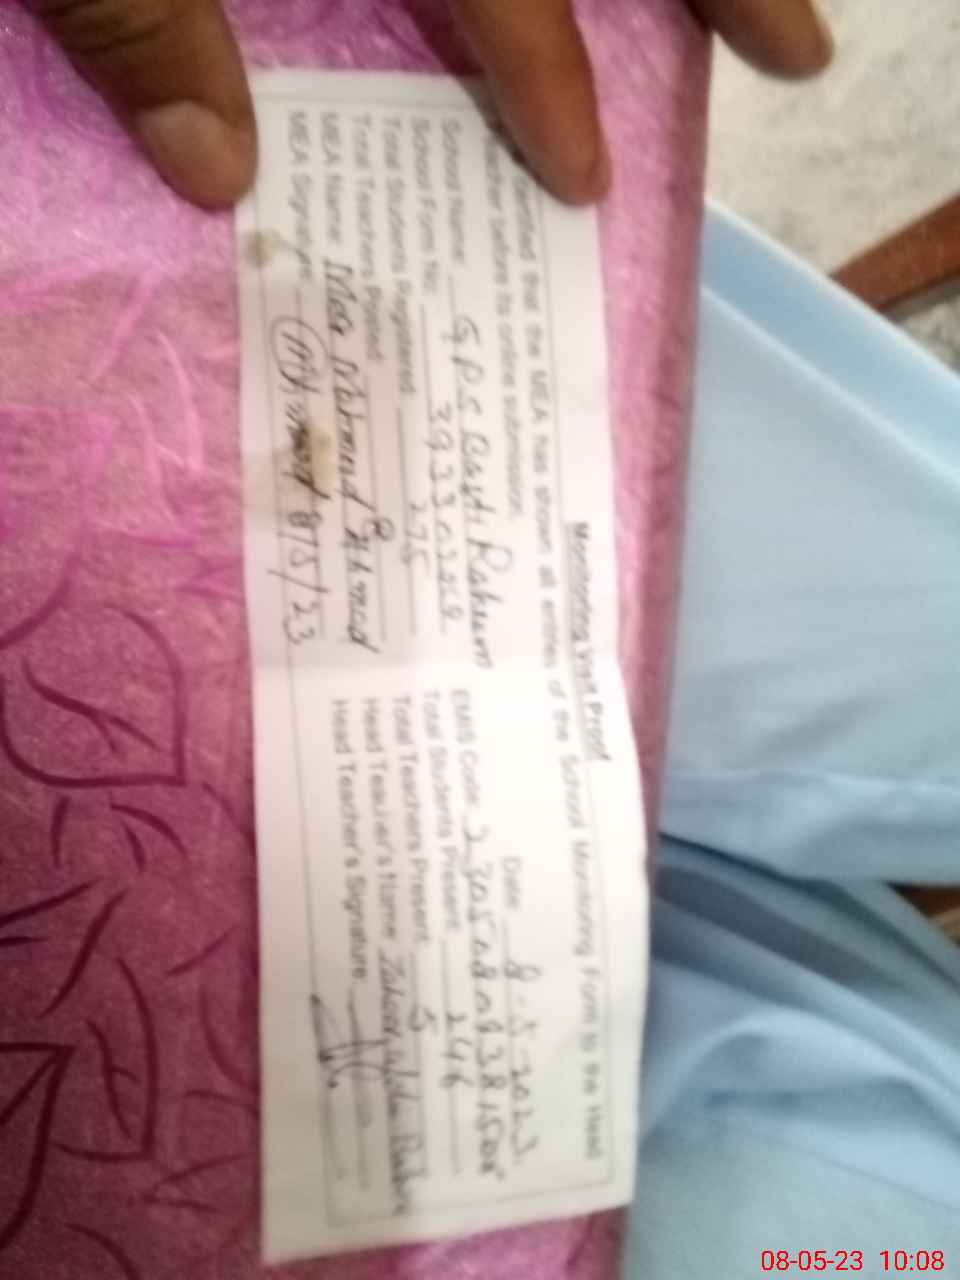 Monitoring Visit Proof
certified that the MEA has shown all entries of the School Monitoring Form to the Head
Teacher before its online submission.
Date 8-5-2023
School Name: G P S Basti Raheem
EMIS Code
School Form No.
Total Students Registered 275
Total Students Present 246
Total Teachers Posted 8
Total Teachers Present 5
MEA Name Mahmud Ahmad
Head Teacher's Name
MEA Signature 8/5/23
Head Teacher's Signature
08-05-23 10:08